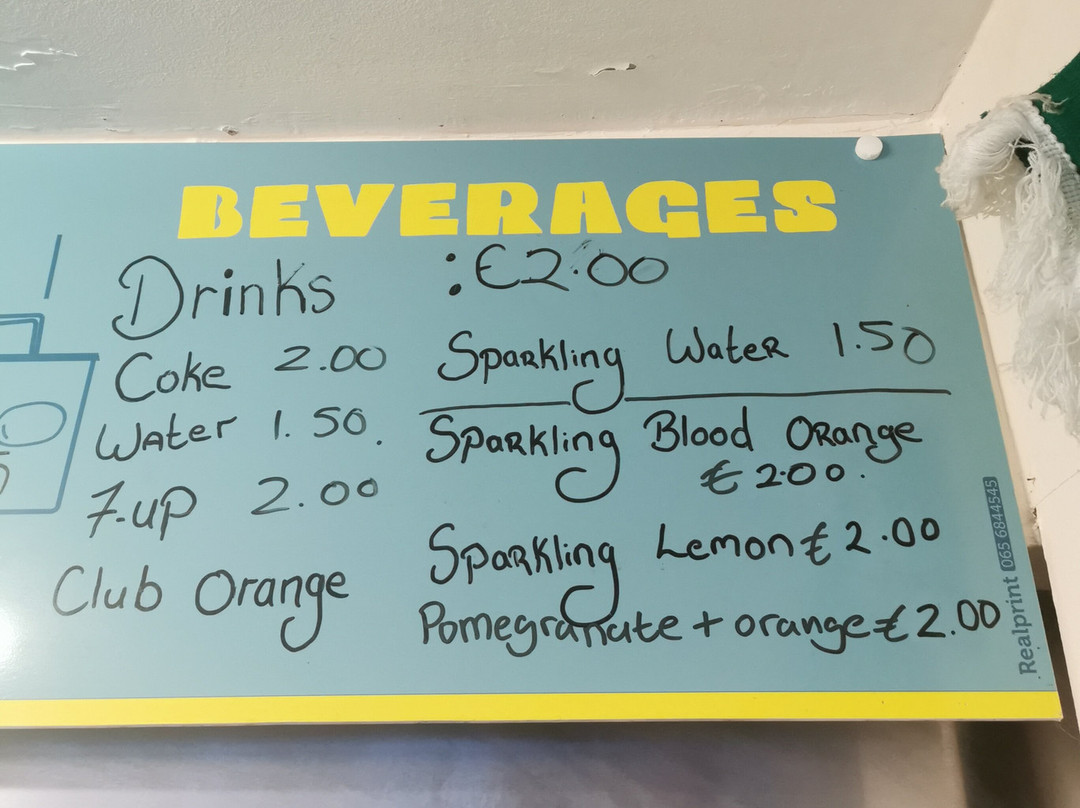 BEVERAGES
Drinks :€2.00
Coke 2.00
Water 1.50.
7-up 2.00
Club Orange
Sparkling Water 1.50
Sparkling Blood Orange
€2.00.
Sparkling Lemon €2.00
Pomegranate + orange €2.00
Realprint 065 6844545